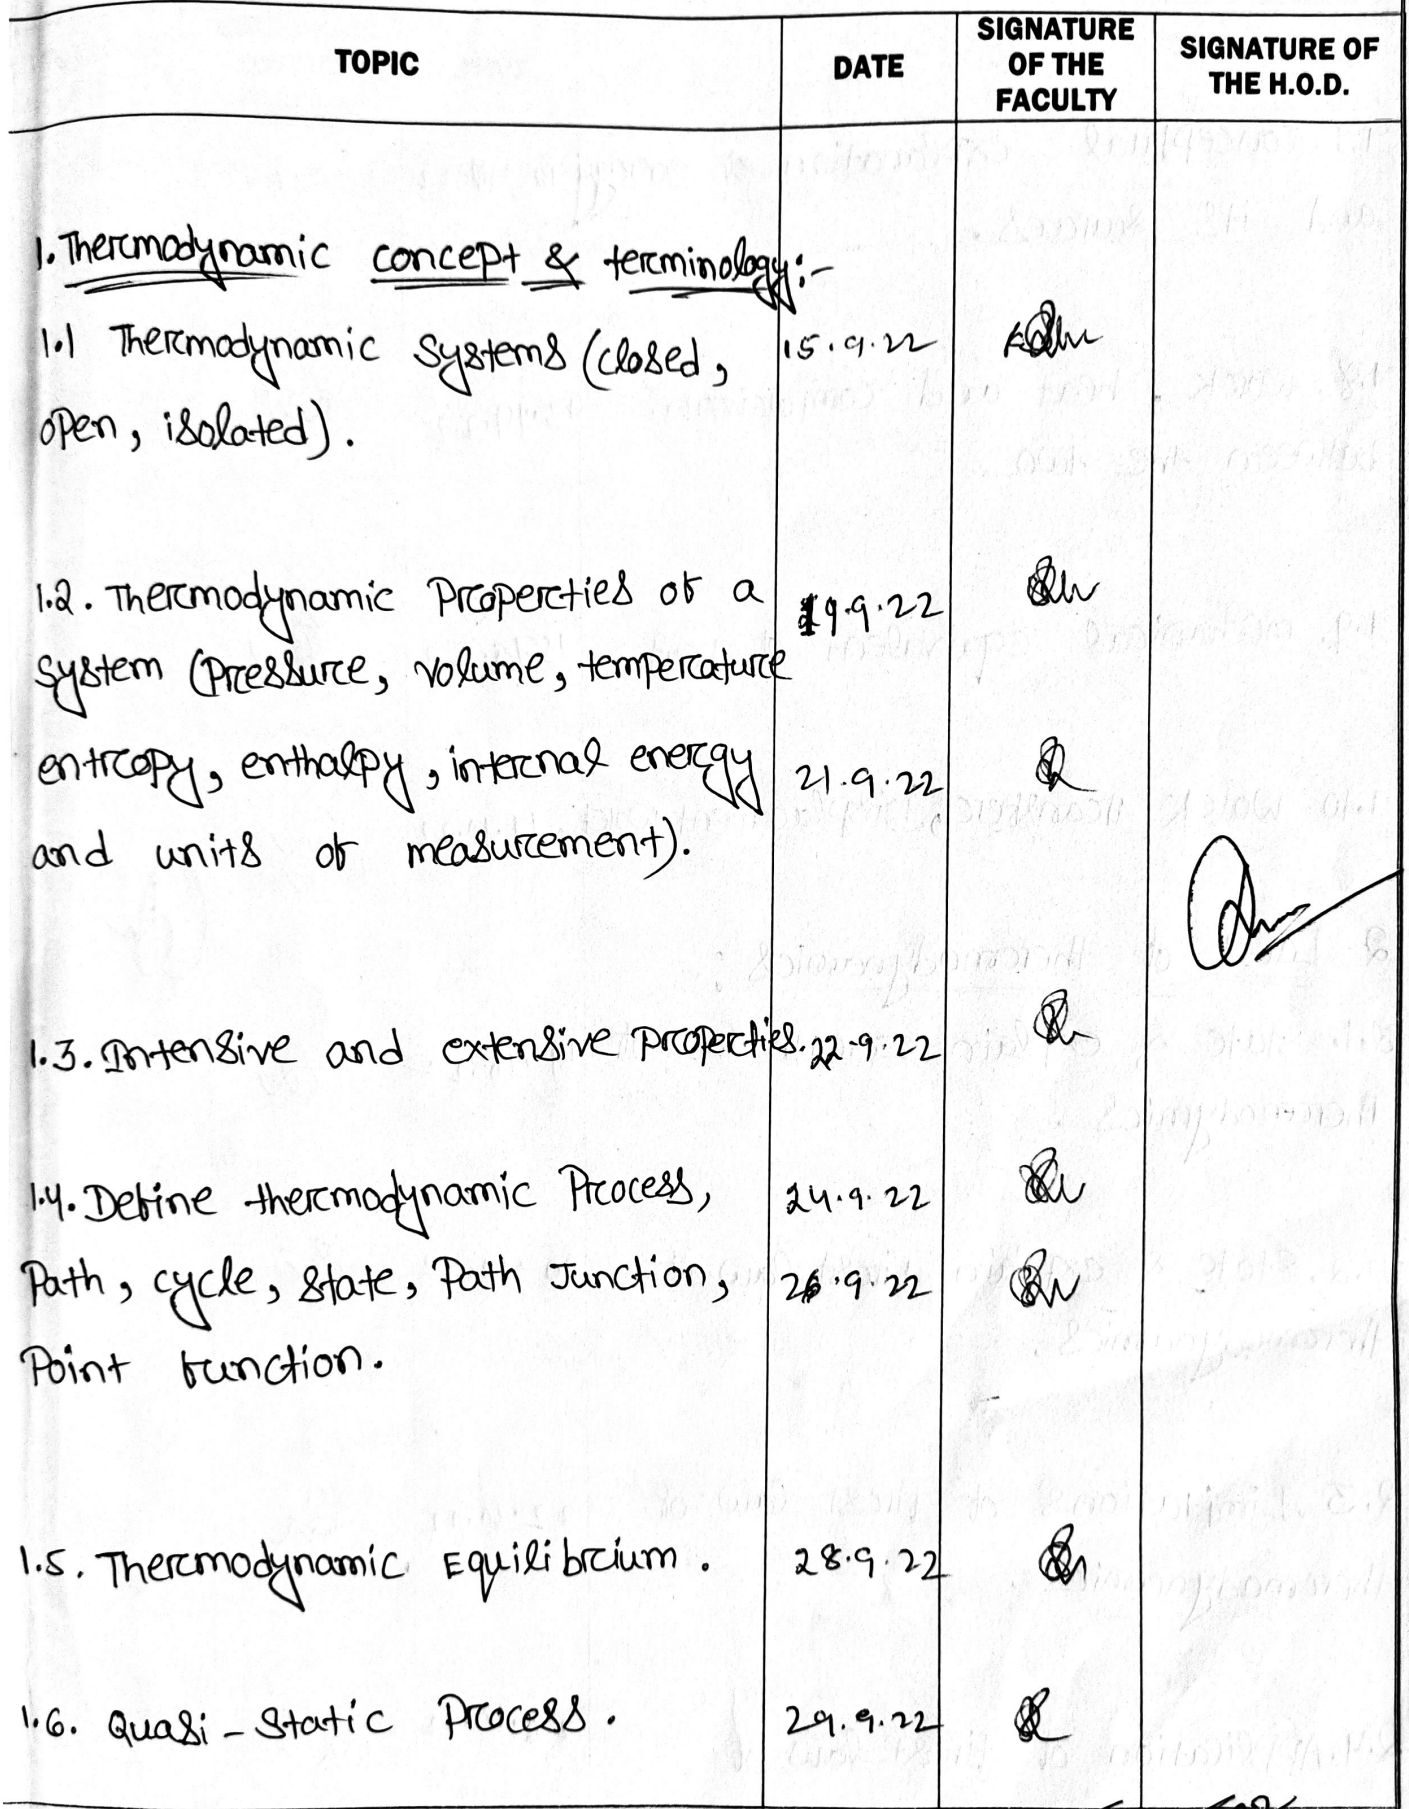 TOPIC DATE SIGNATURE OF THE FACULTY SIGNATURE OF THE H.O.D.
1. Thermodynamic concept & terminology:-
1.1 Thermodynamic Systems (closed, 15.9.22
open, isolated).
1.2. Thermodynamic Properties of a 19.9.22
system (Pressure, volume, temperature
entropy, enthalpy, internal energy 21.9.22
and units of measurement).
1.3. Intensive and extensive properties. 22.9.22
1.4. Define thermodynamic Process, 24.9.22
Path, cycle, state, Path Junction, 26.9.22
Point function.
1.5. Thermodynamic Equilibrium. 28.9.22
1.6. Quasi-Static Process. 29.9.22